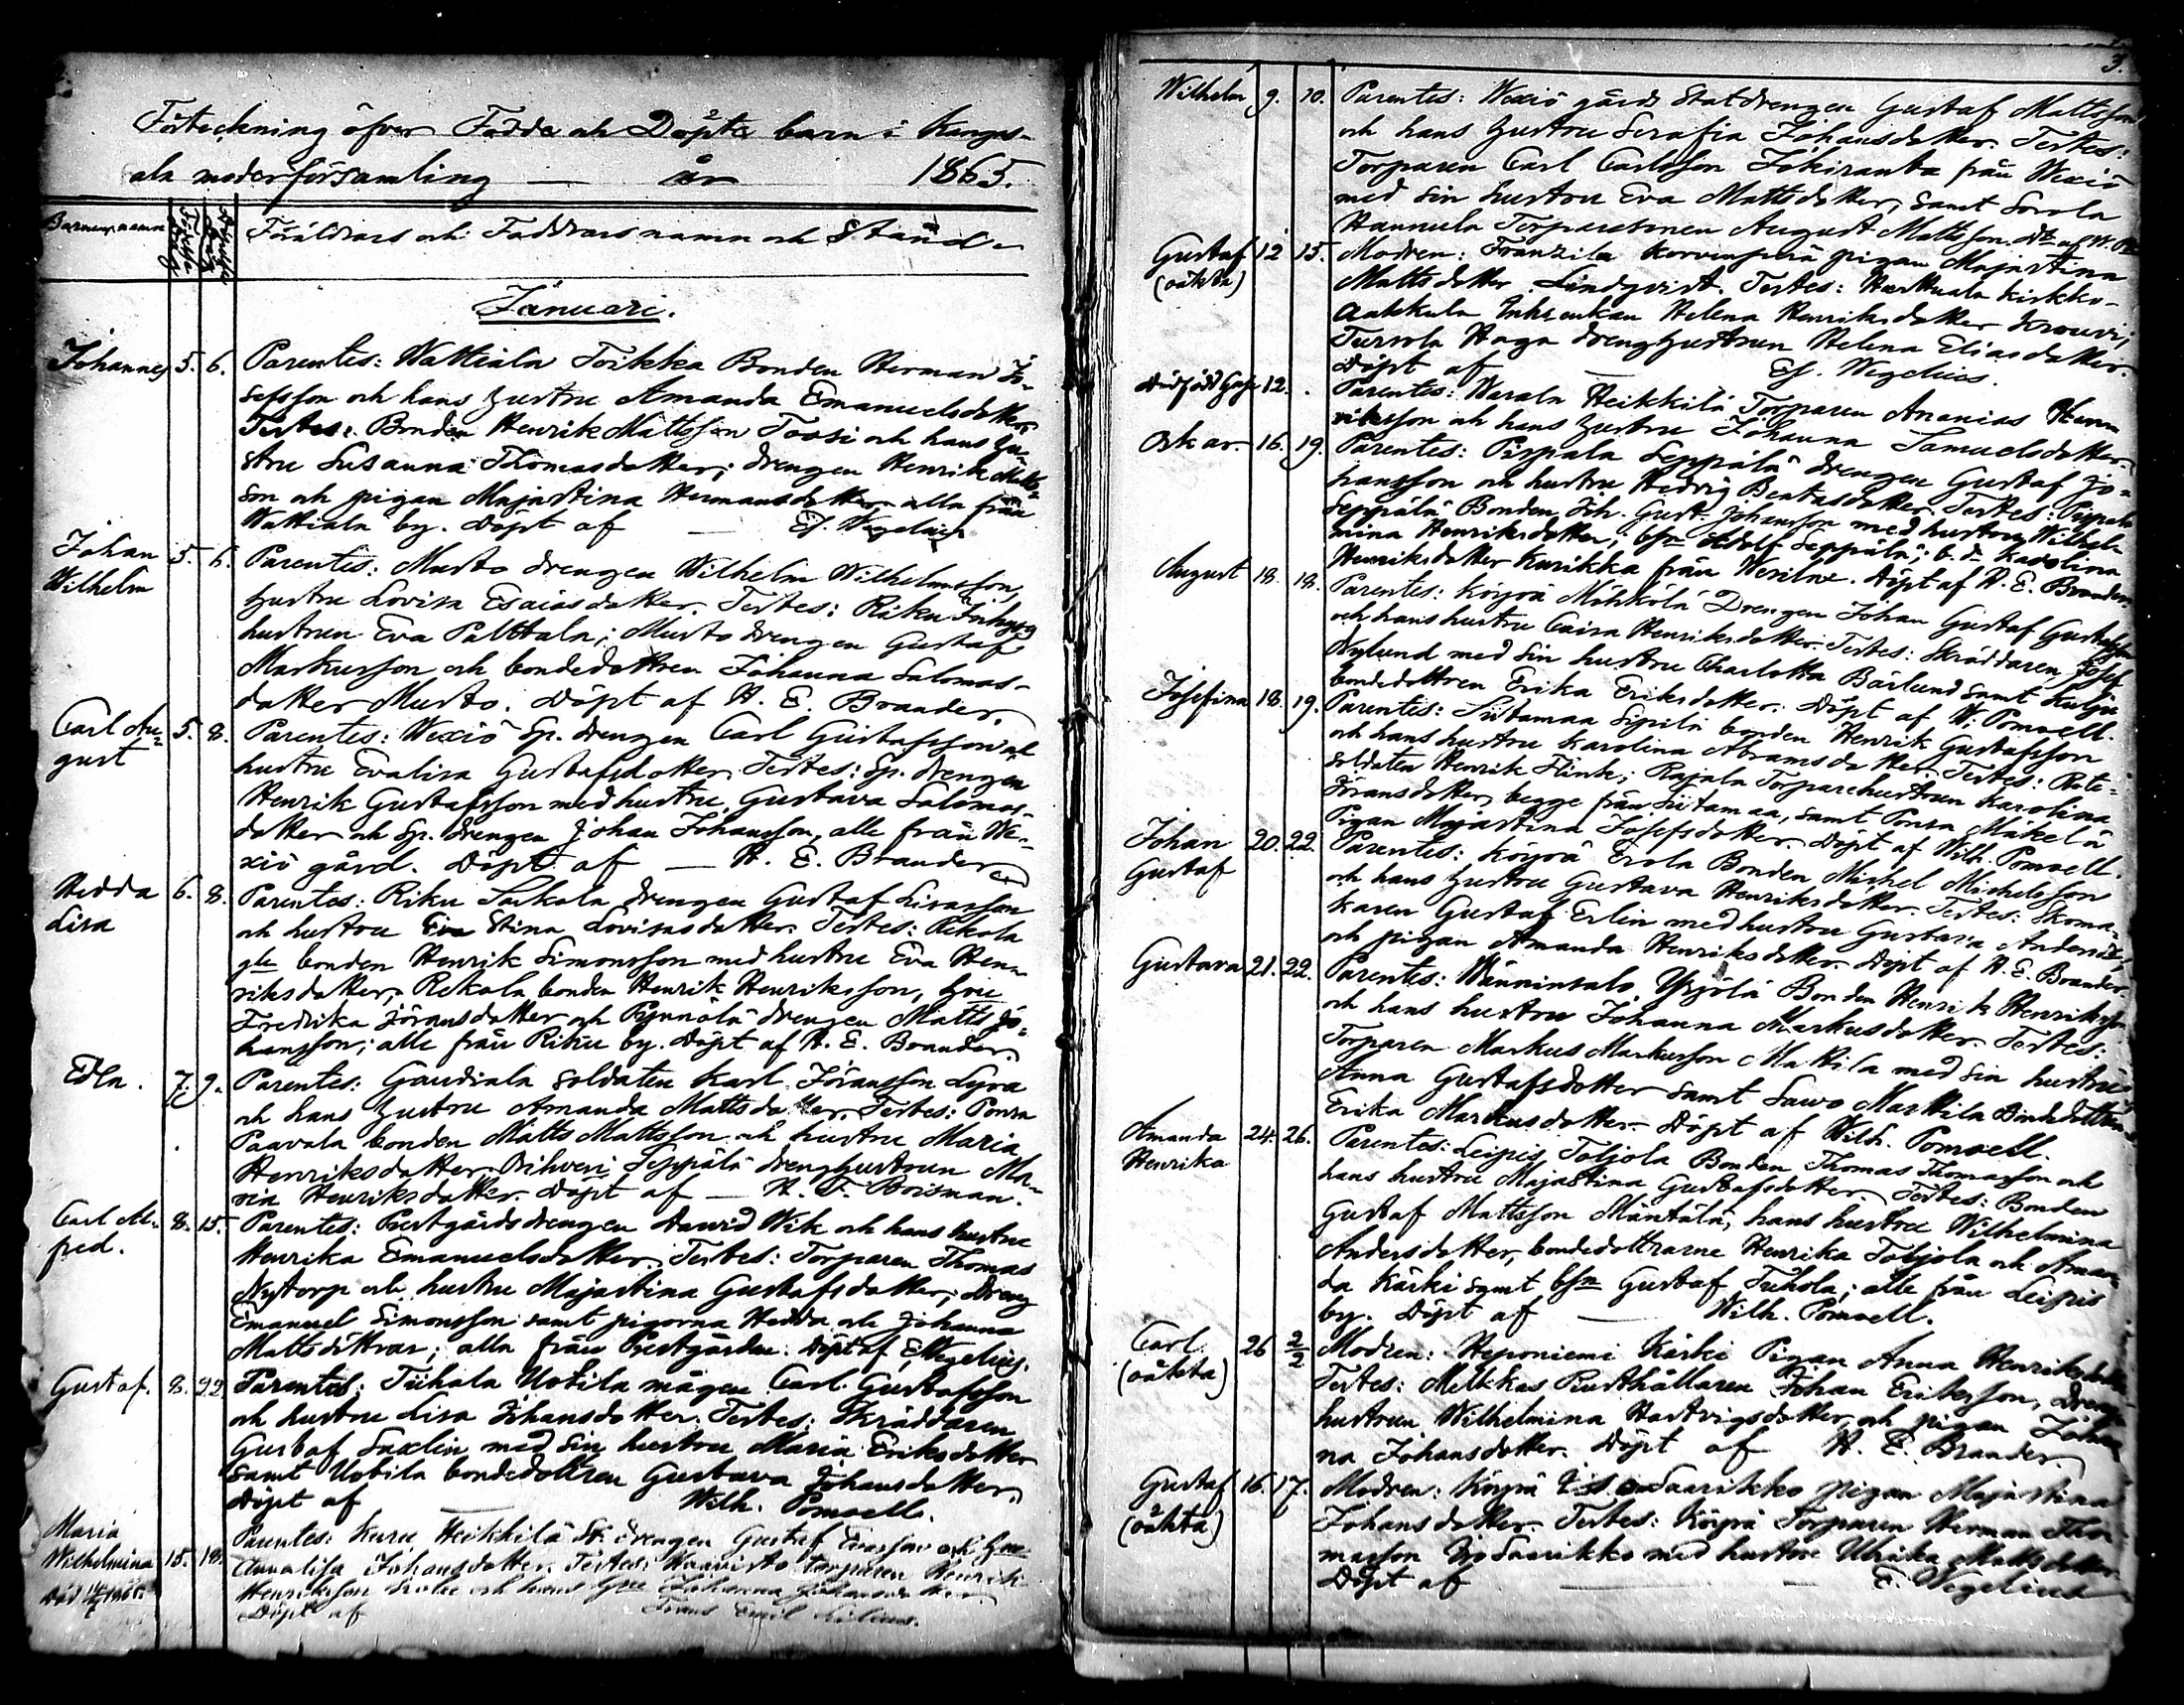 Förteckning öfver Födde och Döpte barn i Kangas-
ala moderförsamling — år 1865.
Barnens namn
Föräldrars och Faddrars namn och Stånd
Januari.
Johannes 5. 6. Parentes: Wattiala Toikka Bonden Herman Jo-
sefsson och hans hustru Amanda Emanuelsdotter
Testes: Bonden Henrik Mattsson Tossi och hans hu-
stru Susanna Thomasdotter; drengen Henrik Matts-
son och pigan Majastina Hermansdotter, alla från
Wattiala by. Döpt af — Ef. Wegelius
Johan 5. 6. Parentes: Musto drengen Wilhelm Wilhelmsson,
Wilhelm hustru Lovisa Esaiasdotter. Testes: Riku
hustrun Eva Palttala; Musto drengen Gustaf
Markusson och bondedottren Johanna Salomos-
dotter Musto. Döpt af H. E. Brander.
Carl Au- 5. 8. Parentes: Wexiö Sp. drengen Carl Gustafsson och
gust hustru Evalisa Gustafsdotter. Testes: Sp. drengen
Henrik Gustafsson med hustru, Gustava Salomos-
dotter och Sp. drengen Johan Johansson, alle från We-
xiö gård. Döpt af — H. E. Brander
Hedda 6. 8. Parentes: Riku Sakola drengen Gustaf Lisasson
Lisa och hustru Eva Stina Lovisasdotter. Testes: Rekola
gle bonden Henrik Simonsson med hustru Eva Hen-
riksdotter, Rekola bonden Henrik Henriksson, hru
Fredrika Jöransdotter och Pynnölä drengen Matts Jo-
hansson; alle från Riku by. Döpt af H. E. Brander.
Edla. 7. 9. Parentes: Gaudiala soldaten Karl Jöransson Lyra
och hans hustru Amanda Mattsdotter. Testes: Ponsa
Paavola bonden Matts Mattsson och hustru Maria
Henriksdotter, Orihvesi Seppälä drenghustrun Ma-
ria Henriksdotter. Döpt af — H. F. Boisman.
Carl Al- 8. 15. Parentes: Prestgårds drengen David Wik och hans hustru
fred. Henrika Emanuelsdotter. Testes: Torparen Thomas
Nytorp och hustru Majastina Gustafsdotter; Dreng
Emanuel Simonsson samt pigorna Hedda och Johanna
Mattsdöttrar; alla från Prestgården. Döpt af E. Wegelius.
Gustaf. 8. 22 Parentes: Tiihala Uotila mågen Carl Gustafsson
och hustru Lisa Johansdotter. Testes: Skräddaren
Gustaf Saxlin med sin hustru Maria Eriksdotter
samt Uotila bondedottren Gustava Johansdotter.
Döpt af Wilh. Pomoell.
Maria Parentes: Kuru Heikkilä St. drengen Gustaf och hru
Wilhelmina 15. 18. Annalisa Johansdotter. Testes: torparen Henrik
Död Henriksson och hans hru Johanna Johansdotter
Döpt af Frans Emil
3.
Wilhelm 9. 10. Parentes: Wexiö gårds Statdrengen Gustaf Mattsson
och hans hustru Serafia Johansdotter. Testes:
Torparen Carl Carlsson Jokiranta från Wexiö
med sin hustru Eva Mattsdotter, samt Sorola
Hannula Torparesonen August Mattsson. Dt af W. P.
Gustaf 12 15. Modren: Franzila Korvenperä pigan Majastina
(oäkta) Mattsdotter Lindqvist. Testes: Herttuala Kirkko-
aakkula Enkan Helena Henriksdotter Krouvi;
Tursola Haga drenghustrun Helena Eliasdotter.
Döpt af — Ef. Wegelius.
Dödfödd 12. Parentes: Warala Heikkilä Torparen Ananias Hen-
riksson och hans hustru Johanna Samuelsdotter.
Oskar. 16. 19. Parentes: Pispala Seppälä drengen Gustaf Jo-
hansson och hustru Hedvig Beatasdotter. Testes: Pispala
Seppälä Bonden Joh. Gust. Johansson med hustru Wilhel-
mina Henriksdotter; bsn Adolf Seppälä; b. d. Karolina
Henriksdotter Kurikka från Wesilax. Döpt af H. E. Brander.
August 18. 18. Parentes: Köyrä Möhkölä Drengen Johan Gustaf Gustafsson
och hans hustru Caisa Henriksdotter. Testes: Skräddaren Josef
Nylund med sin hustru Charlotta Bärlund samt
bondedottren Erika Eriksdotter. Döpt af W. Pomoell.
Josefina 18. 19. Parentes: Siitamaa Sipilä bonden Henrik Gustafsson
och hans hustru Karolina Abramsdotter. Testes: Rote-
soldaten Henrik Flink; Rajala Torparehustrun Karolina
Jöransdotter, begge från Siitamaa, samt Ponsa Mäkelä
Pigan Majastina Josefsdotter. Döpt af Wilh. Pomoell.
Johan 20. 22. Parentes: Köyrä Erola Bonden Michel Michelsson
Gustaf och hans hustru Gustava Henriksdotter. Testes: Skoma-
karen Gustaf Erlin med hustru Gustava Andersd.,
och pigan Amanda Henriksdotter. Döpt af H. E. Brander.
Gustava 21. 22. Parentes: Wänninsalo Yrjölä Bonden Henrik Henriksson
och hans hustru Johanna Markusdotter. Testes:
Torparen Markus Markusson Mattila med sin hustru
Anna Gustafsdotter samt Sawo Marttila Bondedottren
Erika Markusdotter. Döpt af Wilh. Pomoell.
Amanda 24. 26. Parentes: Leipis Toljola Bonden Thomas Thomasson och
Henrika hans hustru Majastina Gustafsdotter. Testes: Bonden
Gustaf Mattsson Mäntälä, hans hustru Wilhelmina
Andersdotter, bondedottrarne Henrika Toljola och Aman-
da Kärki samt bsn Gustaf Tuhola; alle från Leipis
by. Döpt af — Wilh. Pomoell.
Carl 26 2/2 Modren: Heponiemi Kärki Pigan Anna Henriksdotter
(oäkta) Testes: Melkkas Rusthållaren Johan Eriksson, Dreng-
hustrun Wilhelmina Hartvigsdotter och pigan Johan-
na Johansdotter. Döpt af H. E. Brander.
Gustaf 16. 17. Modren: Köyrä Saarikko pigan Majastina
(oäkta) Johansdotter. Testes: Köyrä Torparen Herman Tho-
masson Iso Saarikko med hustru Ulrika Mattsdotter.
Döpt af — E. Wegelius